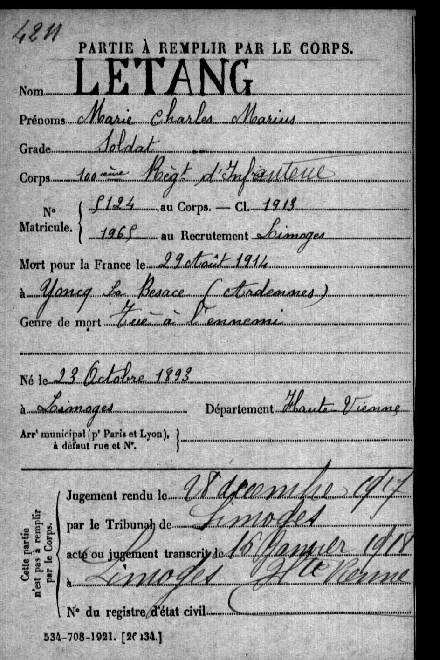 4211
PARTIE À REMPLIR PAR LE CORPS.
Nom LETANG
Prénoms Marie Charles Marius
Grade Soldat
Corps 100ème Règt d'Infanterie
N° Matricule. { 5124 au Corps. — Cl. 1913
1965 au Recrutement Limoges
Mort pour la France le 29 Août 1914
à Yoncq La Besace (Ardennes)
Genre de mort Tué à l'ennemi
Né le 23 Octobre 1893
à Limoges Département Haute Vienne
Arrt municipal (pr Paris et Lyon), à défaut rue et N°. }
Cette partie n'est pas à remplir par le Corps.
Jugement rendu le 28 décembre 1917
par le Tribunal de Limoges
acte ou jugement transcrit le 15 Janvier 1918
à Limoges Hte Vienne
N° du registre d'état civil
534-708-1921. [26434.]